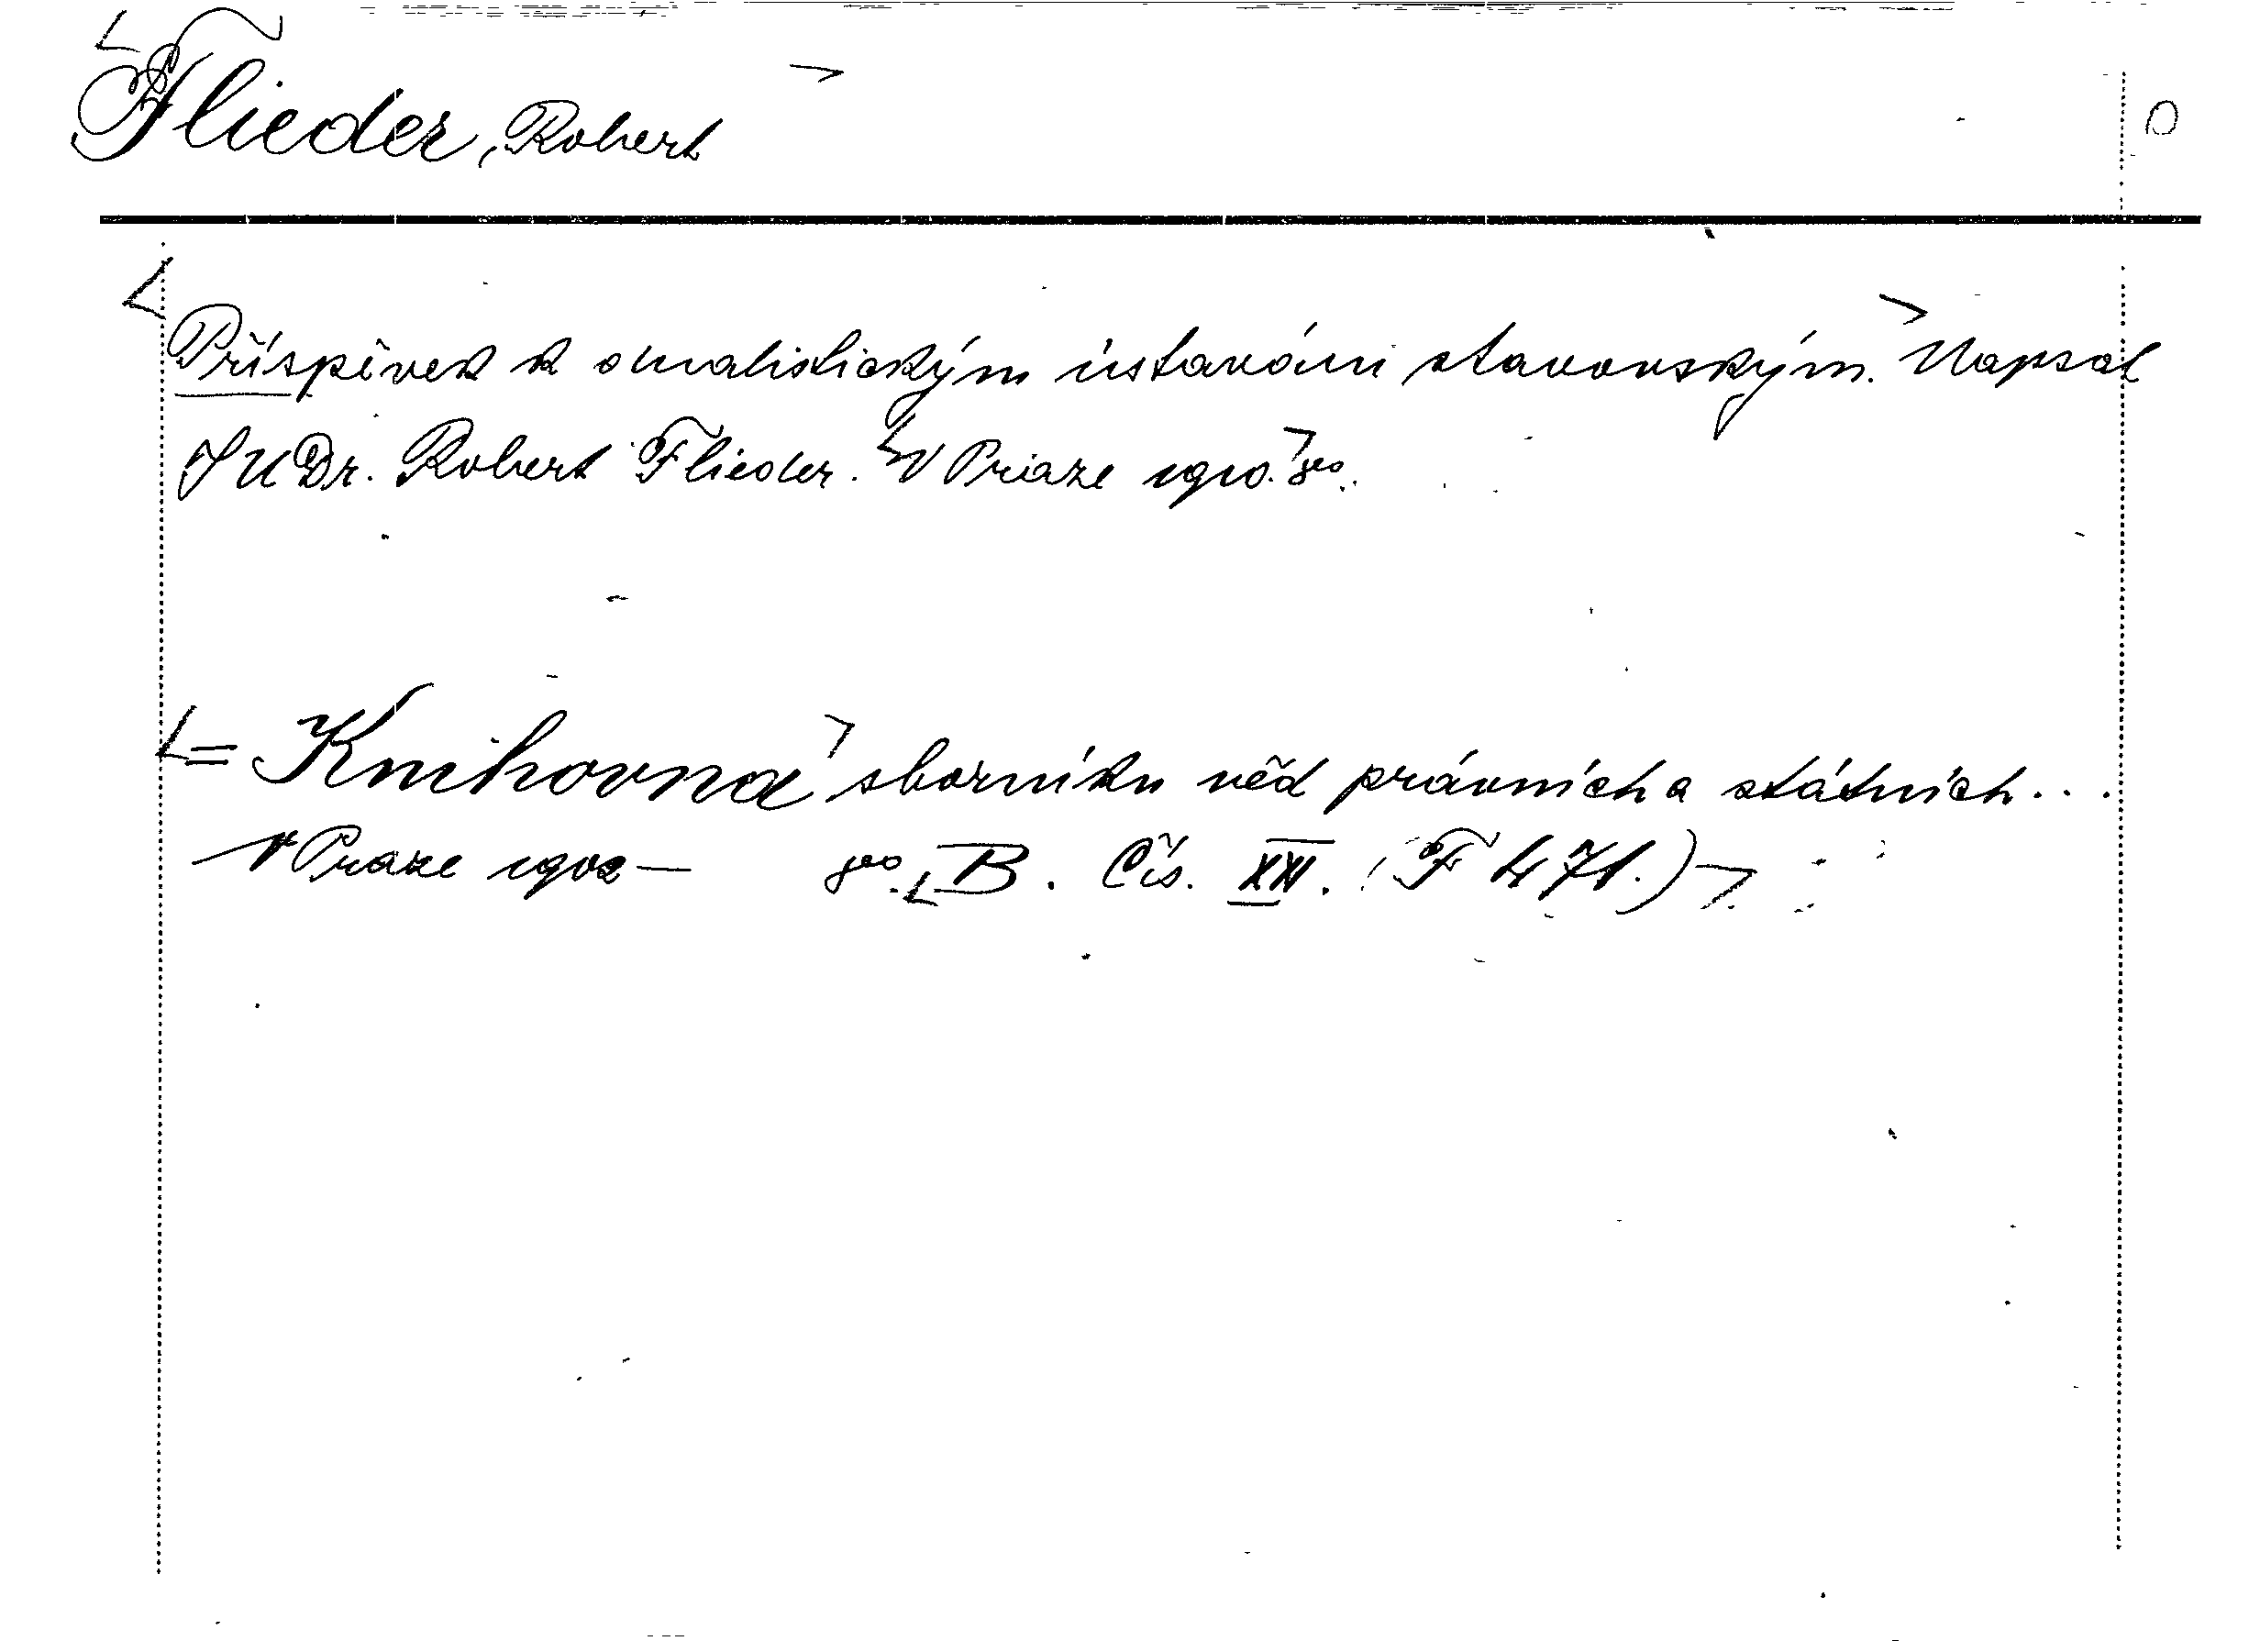 Flieder, Robert
Příspěvek k dualistickým ústavám stavovským. Napsal
JUDr. Robert Flieder. V Praze 1910. 8°.
= Knihovna sborníku věd právních a státních...
V Praze 1902— 8°. B. Čís. XXI. (F 471.)